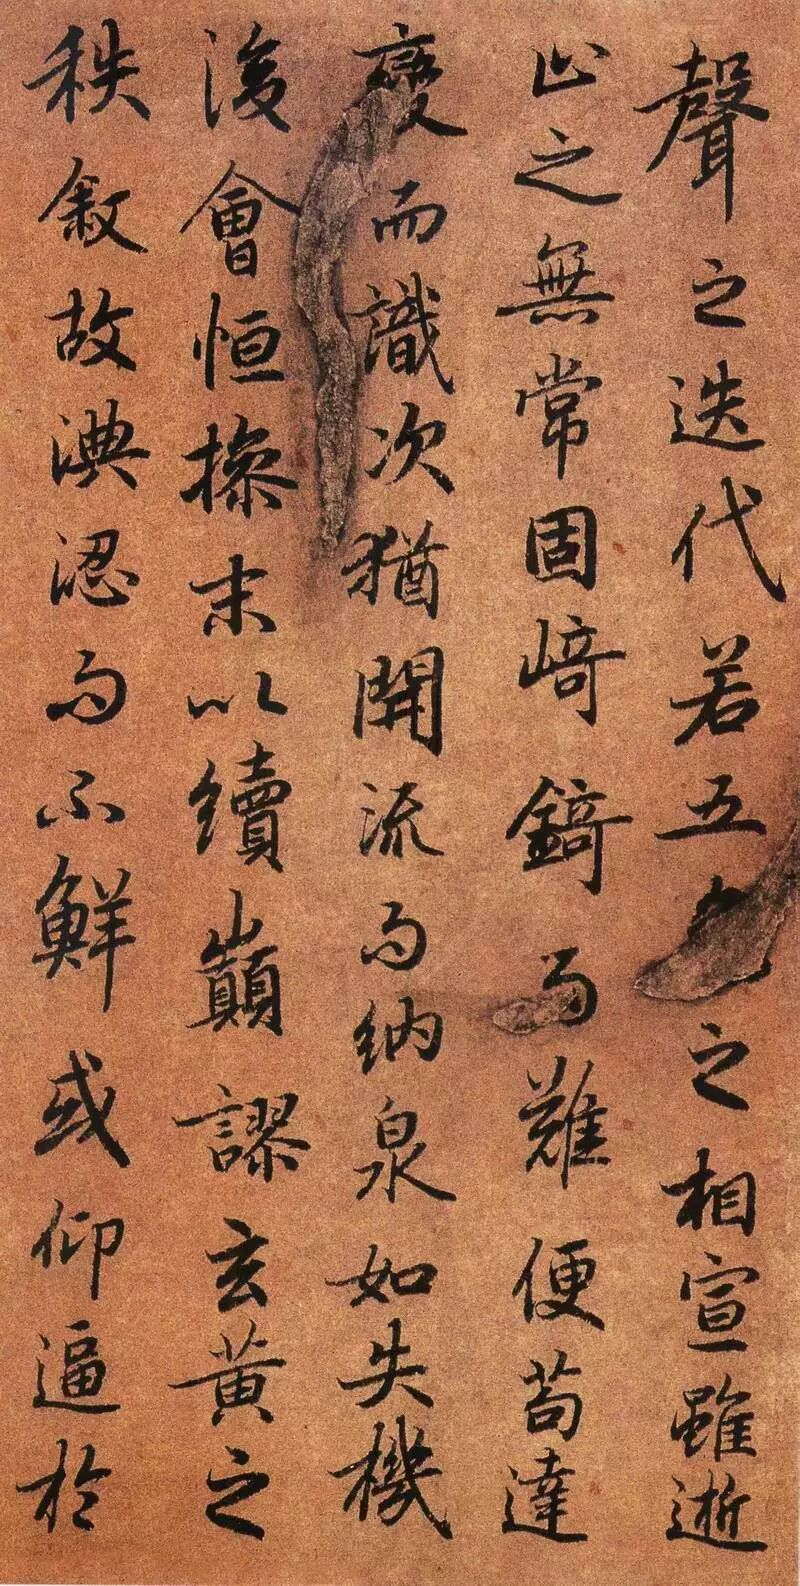 聲之迭代若五之相宣雖逝
止之無常固崎錡而難便苟達
變而識次猶開流而納泉如失機
後會恒操末以續巔謬玄黃之
秩叙故淟涊而不鮮或仰逼於